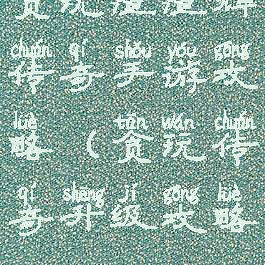 chuán qí shǒu yóu gōng
传奇手游攻
lüè tān wán chuán
略（贪玩传
qí shēng jí gōng lüè
奇升级攻略